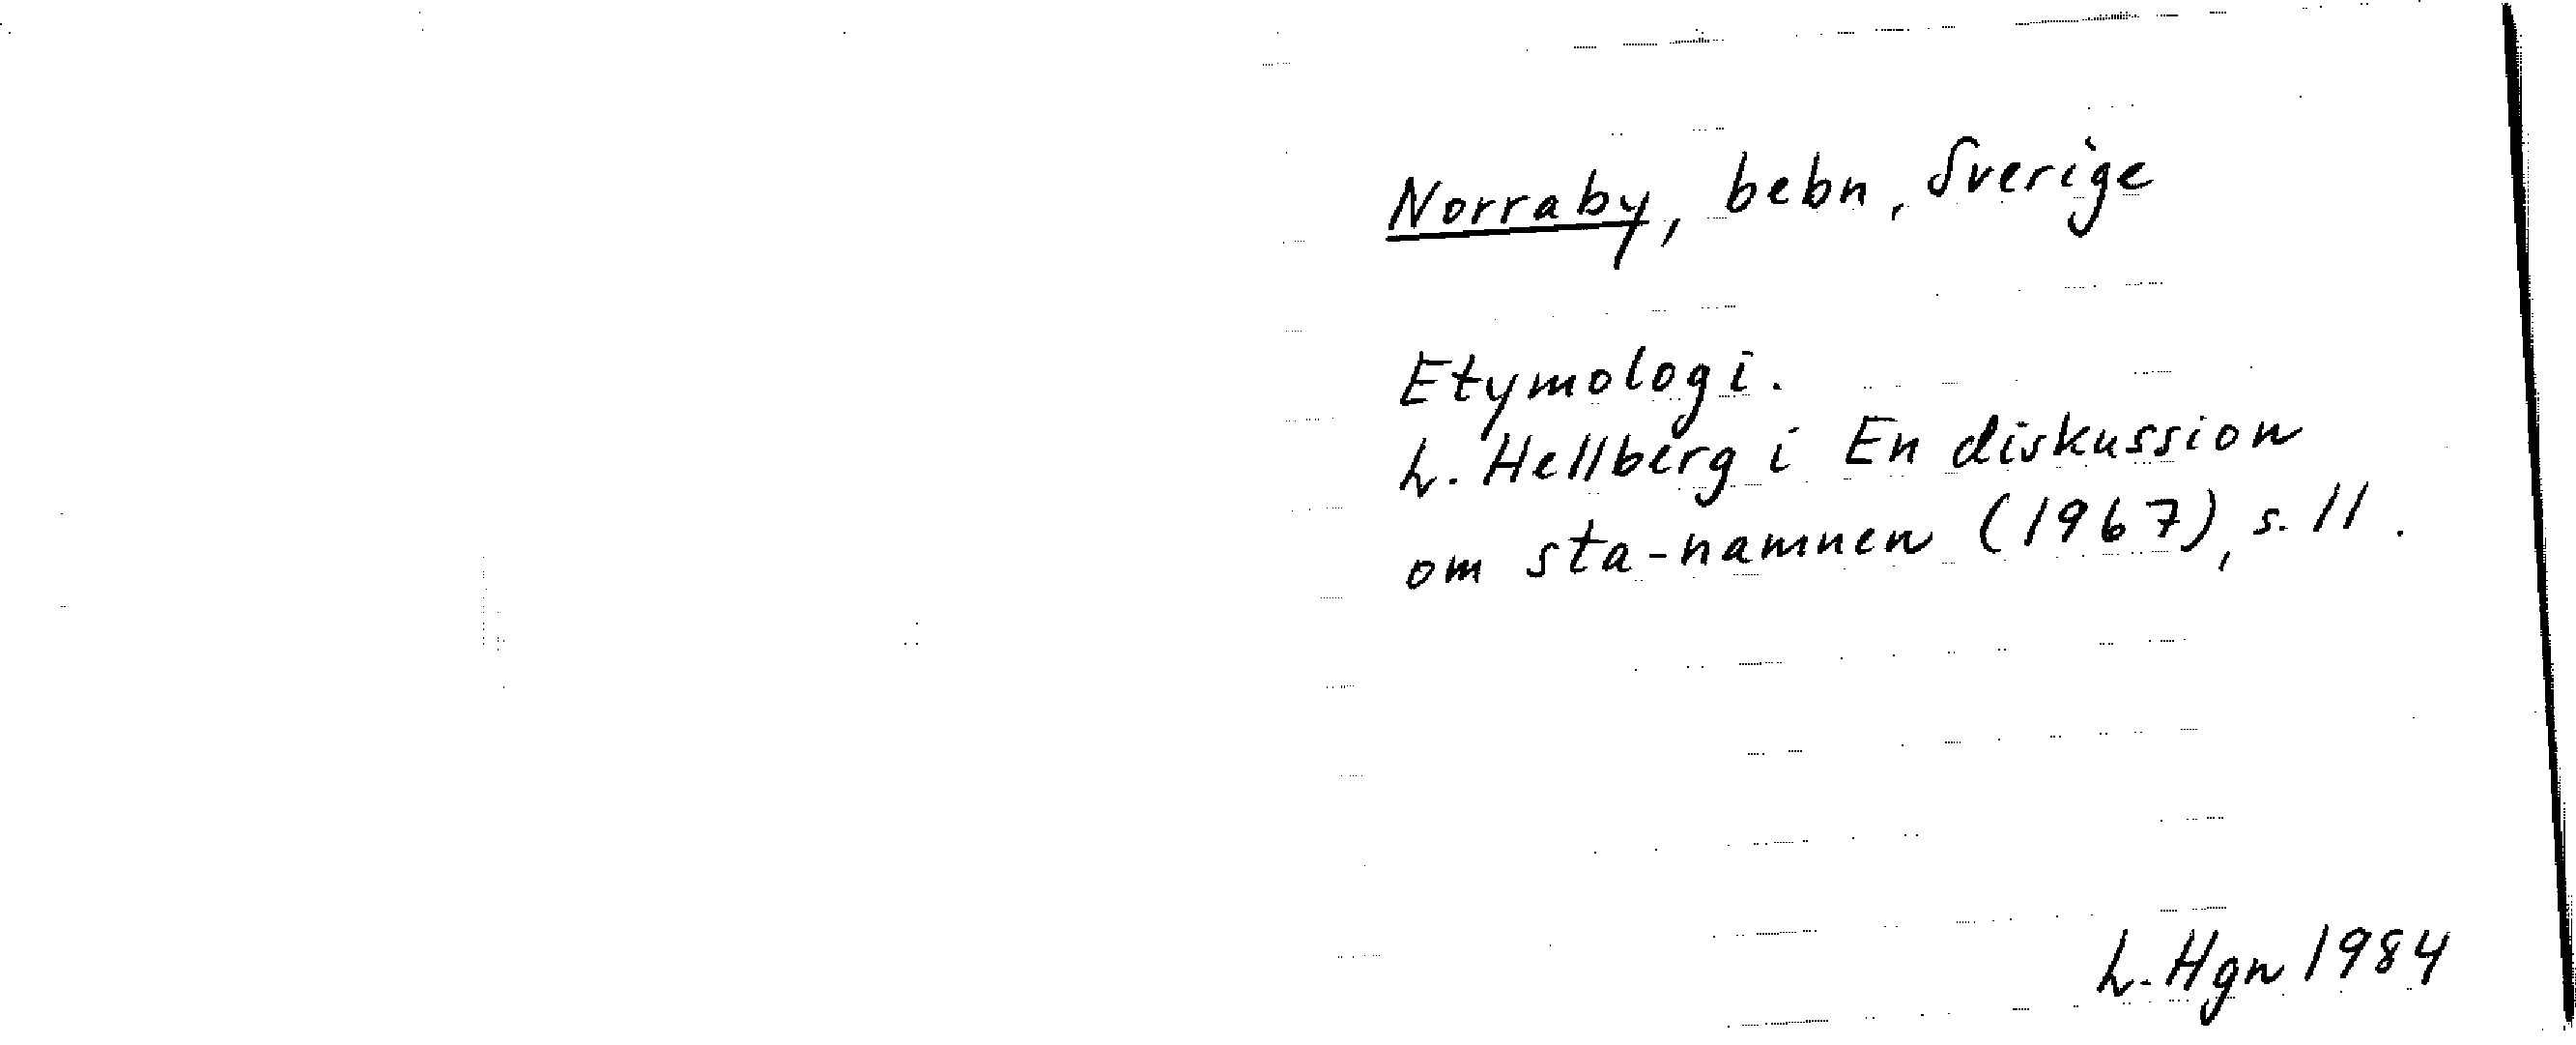 Norraby, bebn, Sverige
Etymologi.
L. Hellberg i En diskussion
om sta-namnen (1967), s. 11.
L. Hgn 1984